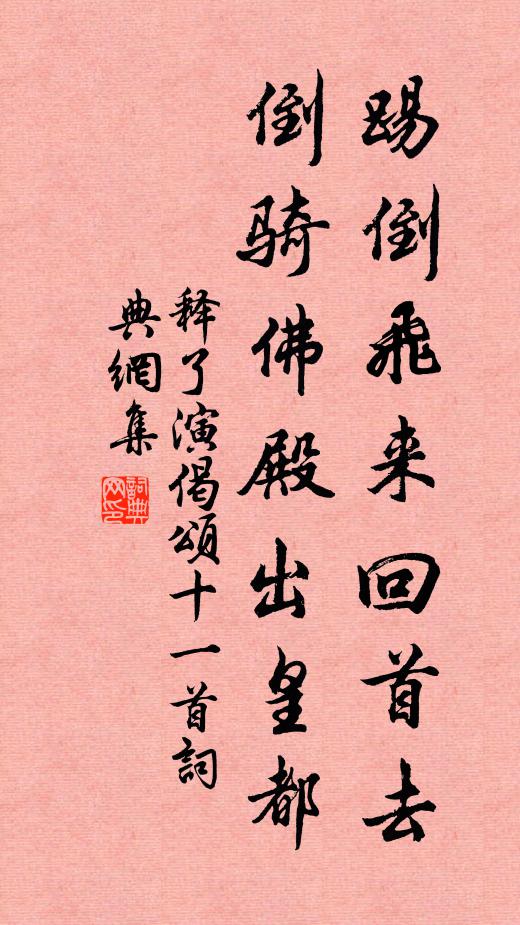 踢倒飛来回首去
倒骑佛殿出皇都
释了演偈頌十一首詞
典網集
詞典網印